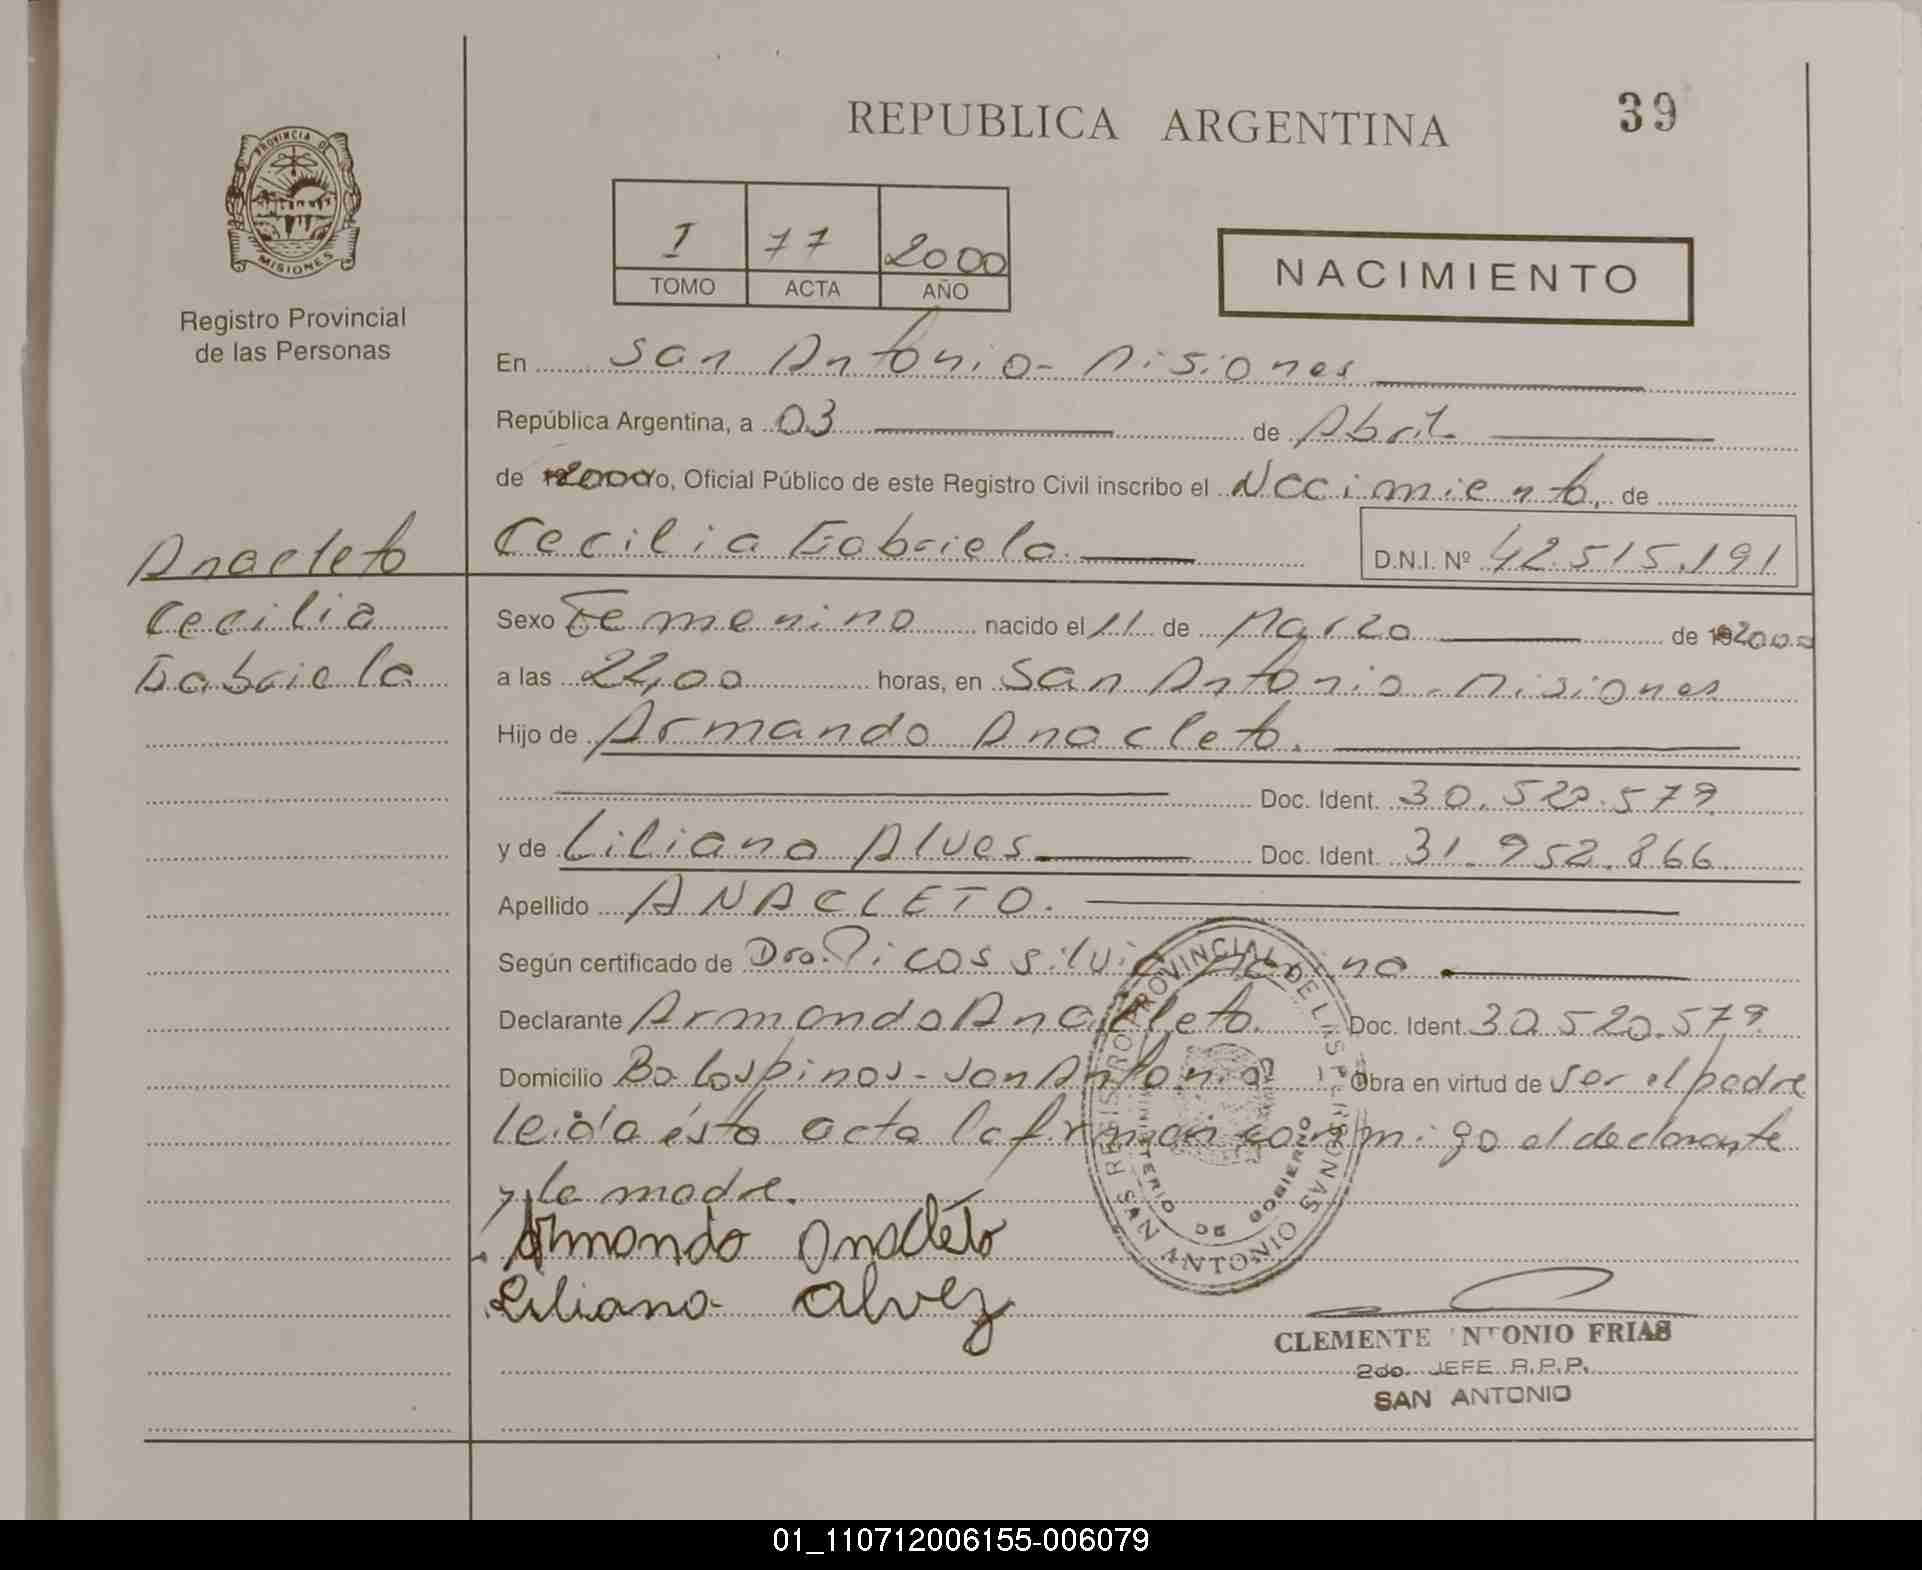 REPUBLICA ARGENTINA
39
PROVINCIA DE
MISIONES
Registro Provincial
de las Personas
I 77 2000
TOMO ACTA AÑO
NACIMIENTO
En San Antonio - Misiones
República Argentina, a 03 de Abril
de 2000 yo, Oficial Público de este Registro Civil inscribo el Nacimiento, de
Cecilia Gabriela D.N.I. Nº 42.515.191
Anacleto
Cecilia
Gabriela
Sexo Femenino nacido el 11 de Marzo de 192000
a las 22,00 horas, en San Antonio - Misiones
Hijo de Armando Anacleto.
Doc. Ident. 30.520.579
y de Liliana Alves Doc. Ident. 31.952.866
Apellido ANACLETO.
Según certificado de Dra. Picos Silvia
Declarante Armando Anacleto. Doc. Ident. 30.520.579
Domicilio Bo los pinos - San Antonio Obra en virtud de ser el padre
leida ésta acta la firman conmigo el declarante
y la madre.
Armando Anacleto
Liliana Alvez
REGISTRO PROVINCIAL DE LAS PERSONAS
MINISTERIO DE GOBIERNO
SAN ANTONIO
CLEMENTE NTONIO FRIAS
2do. JEFE R.P.P.
SAN ANTONIO
01_110712006155-006079